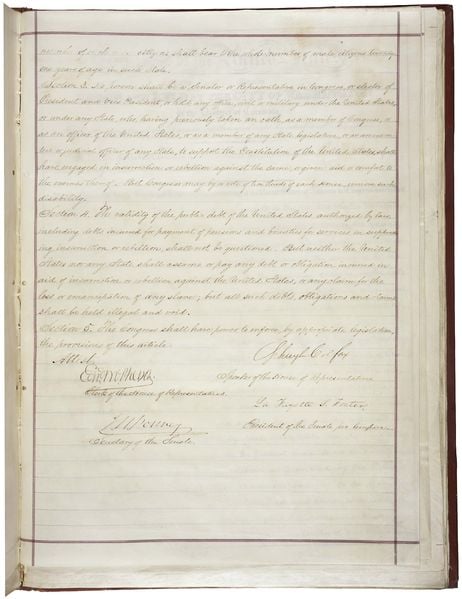 number of such male citizens shall bear to the whole number of male citizens twenty
one years of age in such State.
Section 3. No person shall be a Senator or Representative in Congress, or elector of
President and Vice President, or hold any office, civil or military, under the United States,
or under any State, who, having previously taken an oath, as a member of Congress, or
as an officer of the United States, or as a member of any State legislature, or as an execu
tive or judicial officer of any State, to support the Constitution of the United States, shall
have engaged in insurrection or rebellion against the same, or given aid or comfort to
the enemies thereof. But Congress may by a vote of two thirds of each House, remove such
disability.
Section 4. The validity of the public debt of the United States, authorized by law,
including debts incurred for payment of pensions and bounties for services in suppress
ing insurrection or rebellion, shall not be questioned. But neither the United
States nor any State shall assume or pay any debt or obligation incurred in
aid of insurrection or rebellion against the United States, or any claim for the
loss or emancipation of any slave; but all such debts, obligations and claims
shall be held illegal and void.
Section 5. The Congress shall have power to enforce, by appropriate legislation,
the provisions of this article.
Attest.
Schuyler Colfax
Edwd McPherson
Speaker of the House of Representatives.
Clerk of the House of Representatives.
La Fayette S. Foster
J W Forney
President of the Senate pro tempore.
Secretary of the Senate.